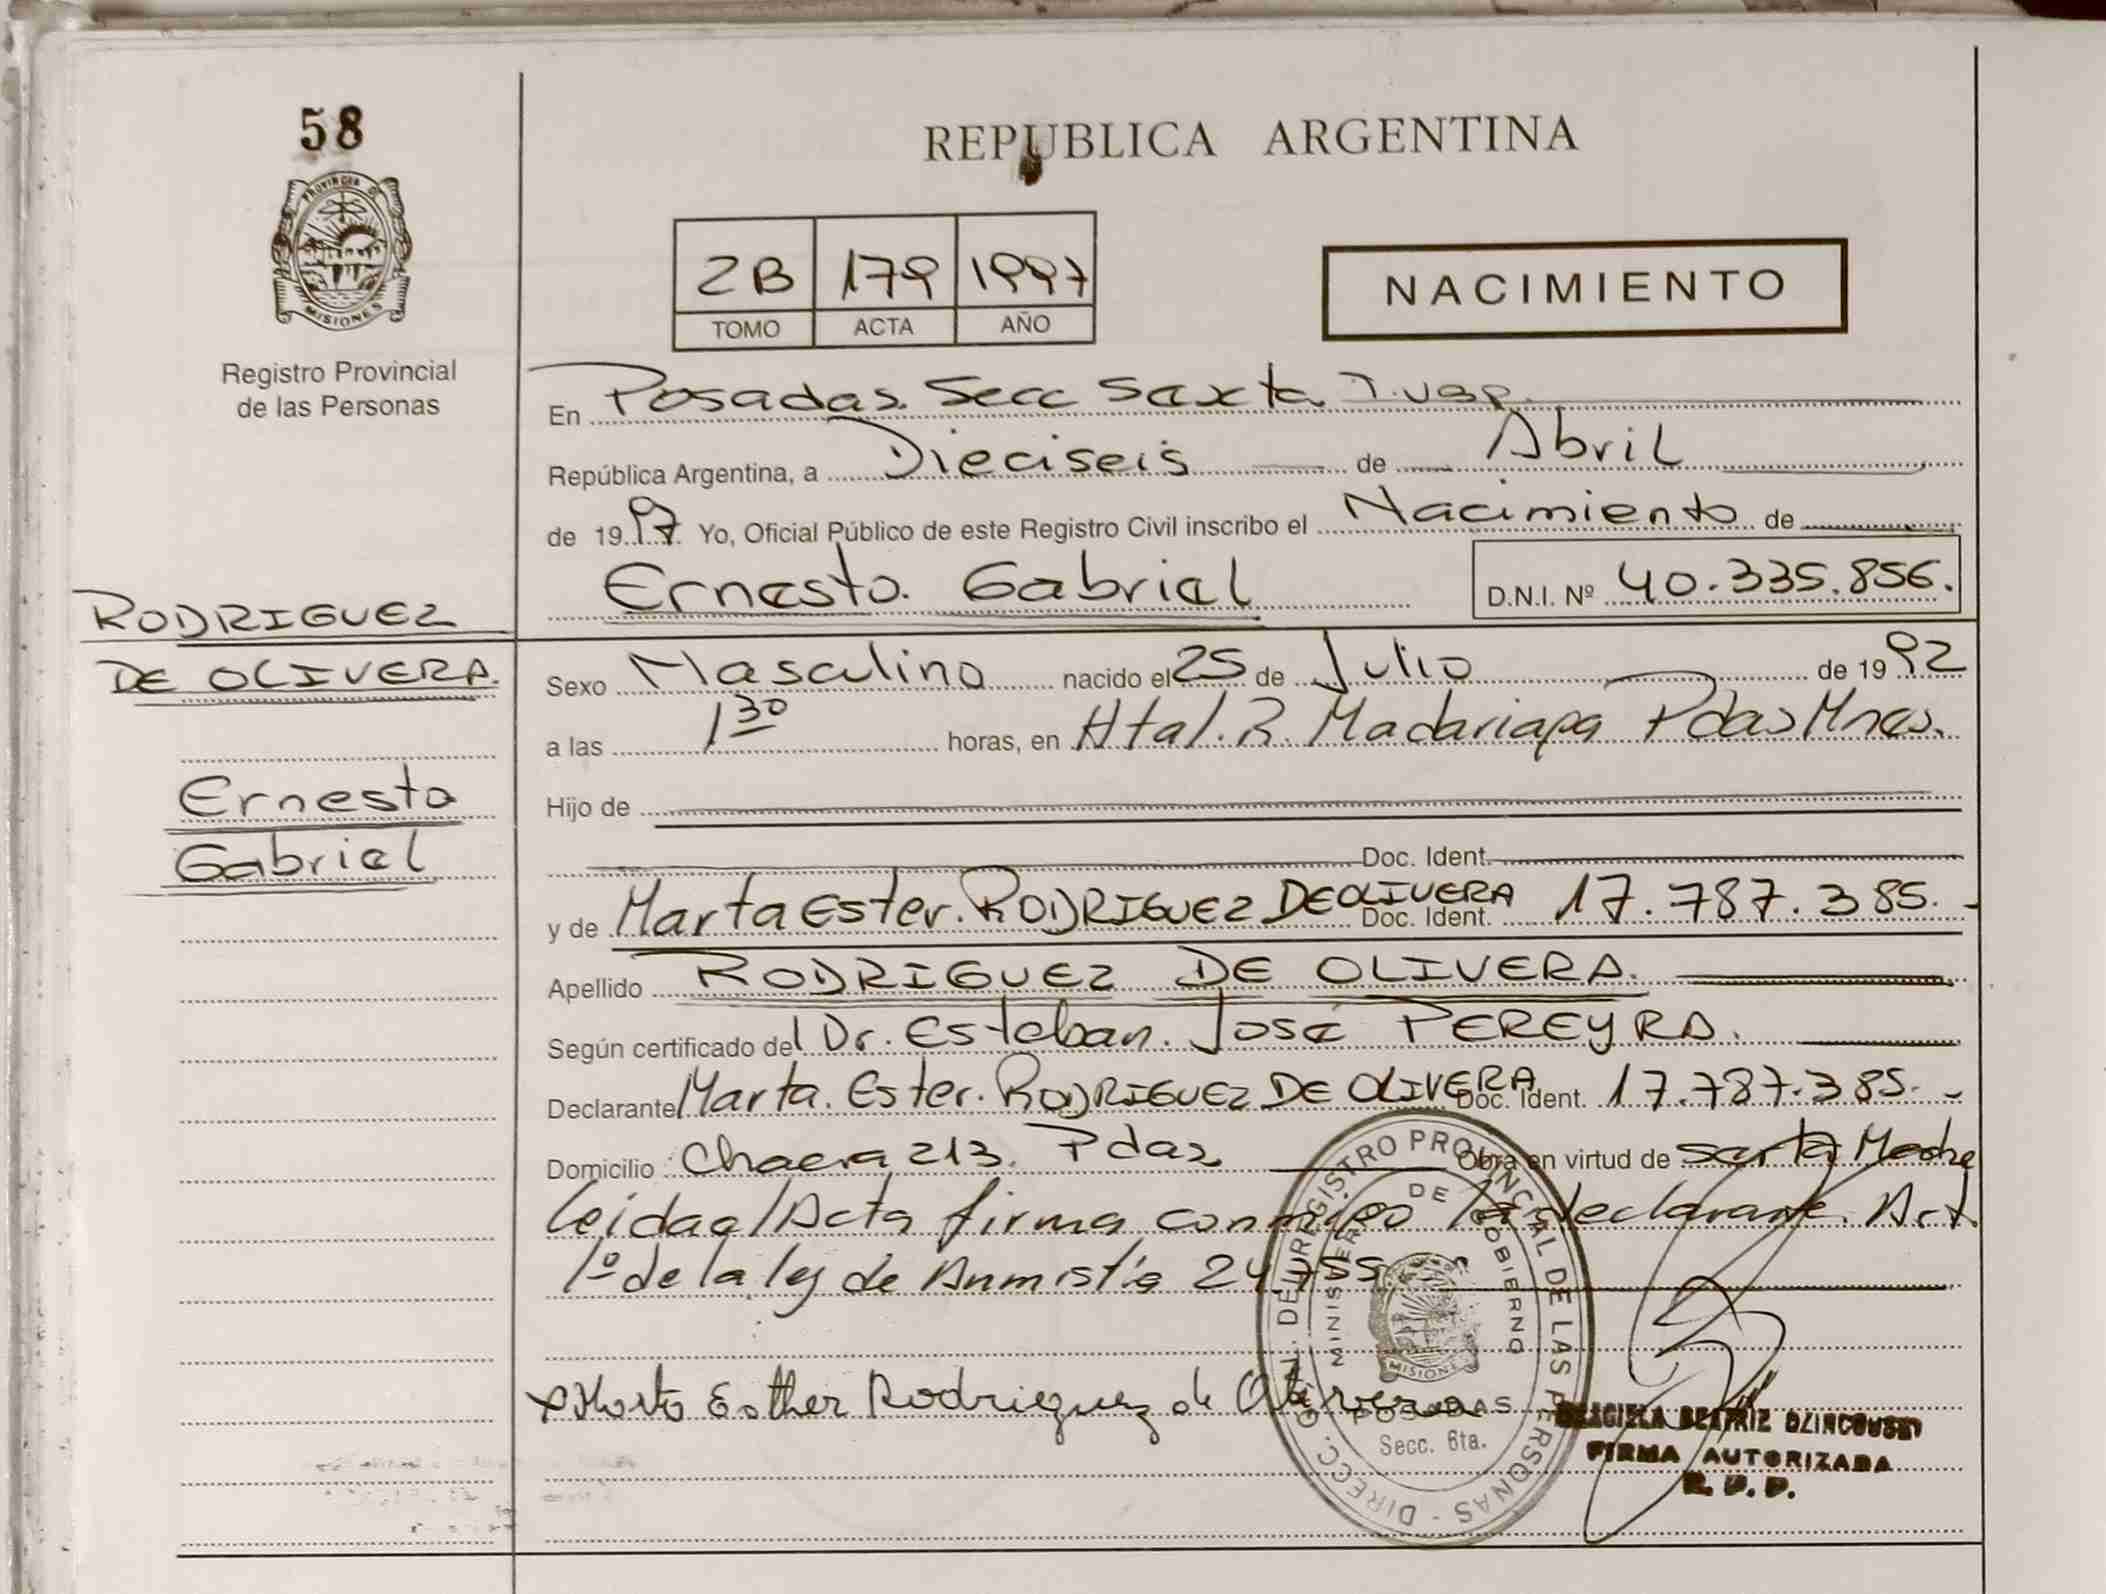 58
REPUBLICA ARGENTINA
PROVINCIA D
MISIONES
2B 179 1997
TOMO ACTA AÑO
NACIMIENTO
Registro Provincial
de las Personas
En Posadas. Secc Sexta
República Argentina, a Dieciseis de Abril
de 1997 Yo, Oficial Público de este Registro Civil inscribo el Nacimiento de
Ernesto. Gabriel D.N.I. Nº 40.335.856.
RODRIGUEZ
DE OLIVERA.
Ernesto
Gabriel
Sexo Masculino nacido el 25 de Julio de 1992
a las 1 30 horas, en Htal. R. Madariaga Pdas Mnes.
Hijo de
Doc. Ident.
y de Marta Ester. RODRIGUEZ DE OLIVERA Doc. Ident. 17.787.385.-
Apellido RODRIGUEZ DE OLIVERA.
Según certificado del Dr. Esteban. José PEREYRA.
Declarante Marta. Ester. RODRIGUEZ DE OLIVERA Doc. Ident. 17.787.385.-
Domicilio Chacra 213. Pdas Obra en virtud de ser la Madre
Leida el Acta firma conmigo la declarante. Art
1º de la ley de Anmistía 24.755
x Marta Esther Rodriguez de Olivera
DIRECC. GRAL. DEL REGISTRO PROVINCIAL DE LAS PERSONAS -
MINISTERIO DE GOBIERNO
MISIONES
POSADAS
Secc. 6ta.
GRACIELA BEATRIZ
FIRMA AUTORIZADA
R. P. P.